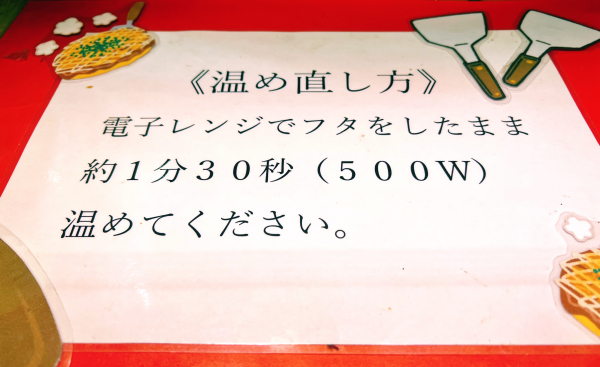 《温め直し方》
電子レンジでフタをしたまま
約１分３０秒（５００W）
温めてください。